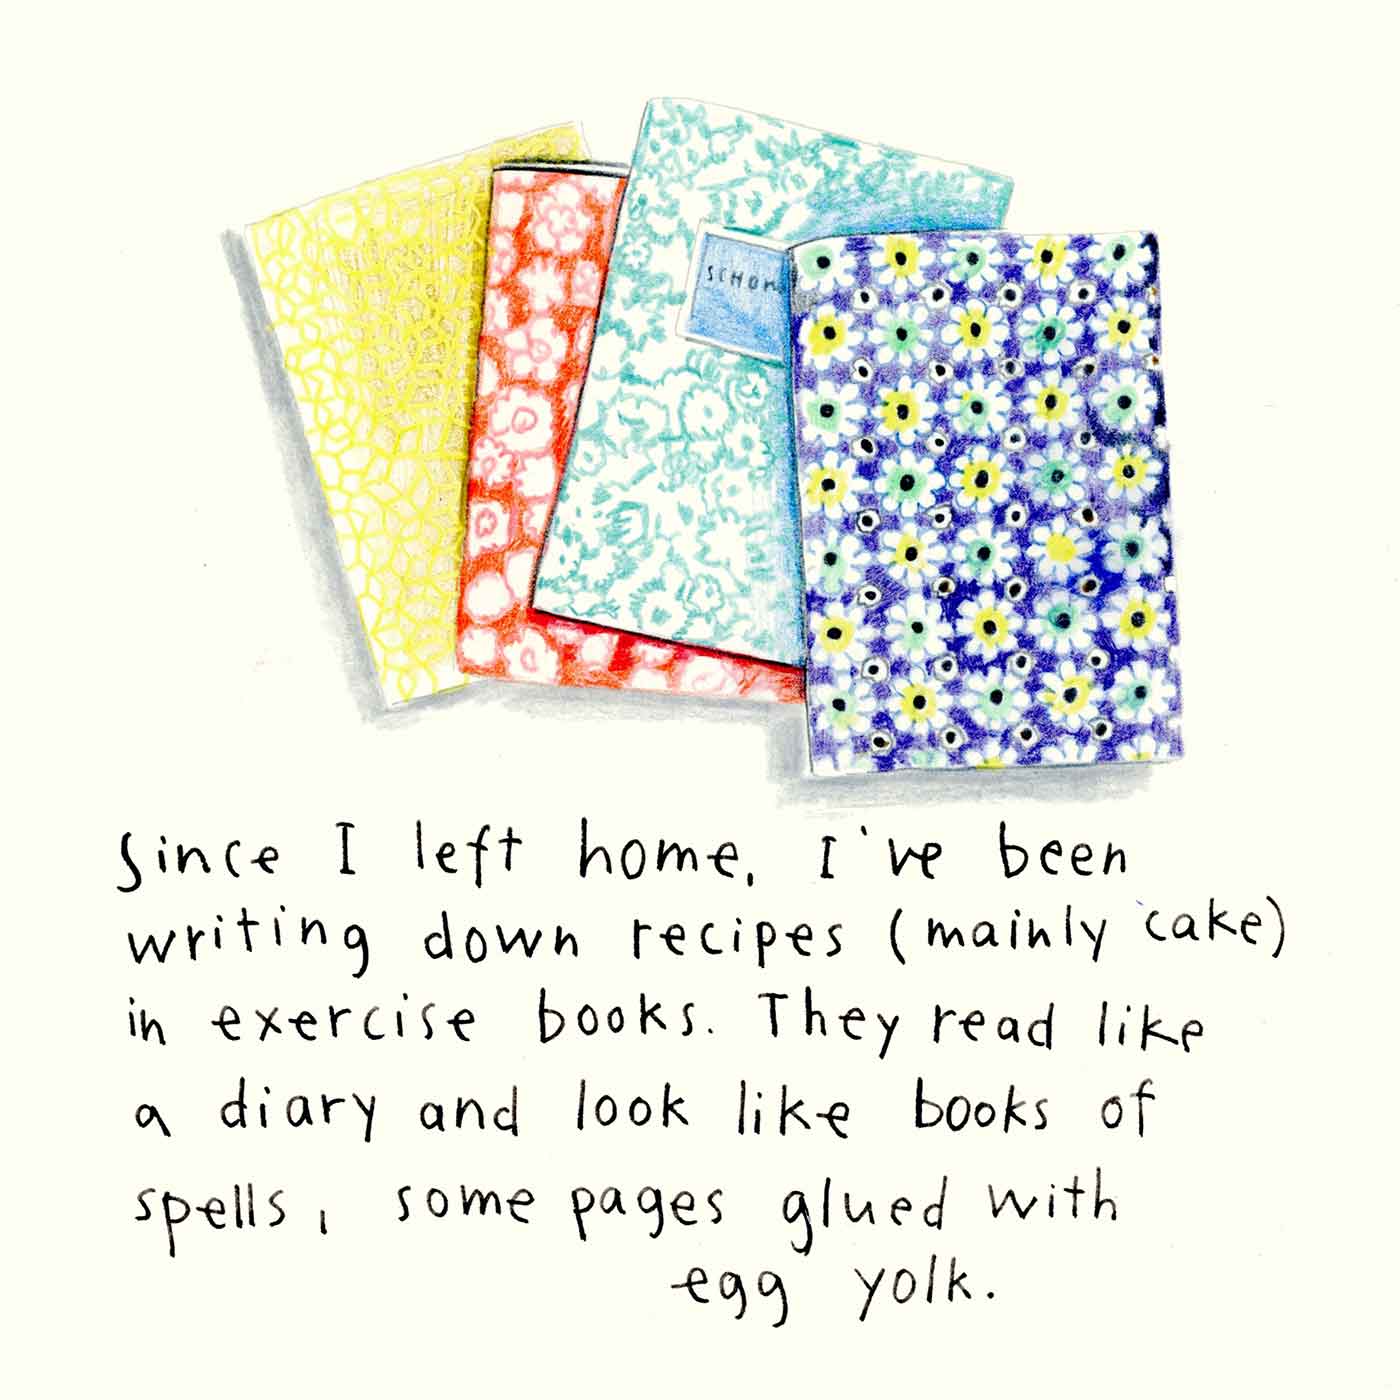 SCHON
Since I left home, I've been
writing down recipes (mainly cake)
in exercise books. They read like
a diary and look like books of
spells, some pages glued with
egg yolk.